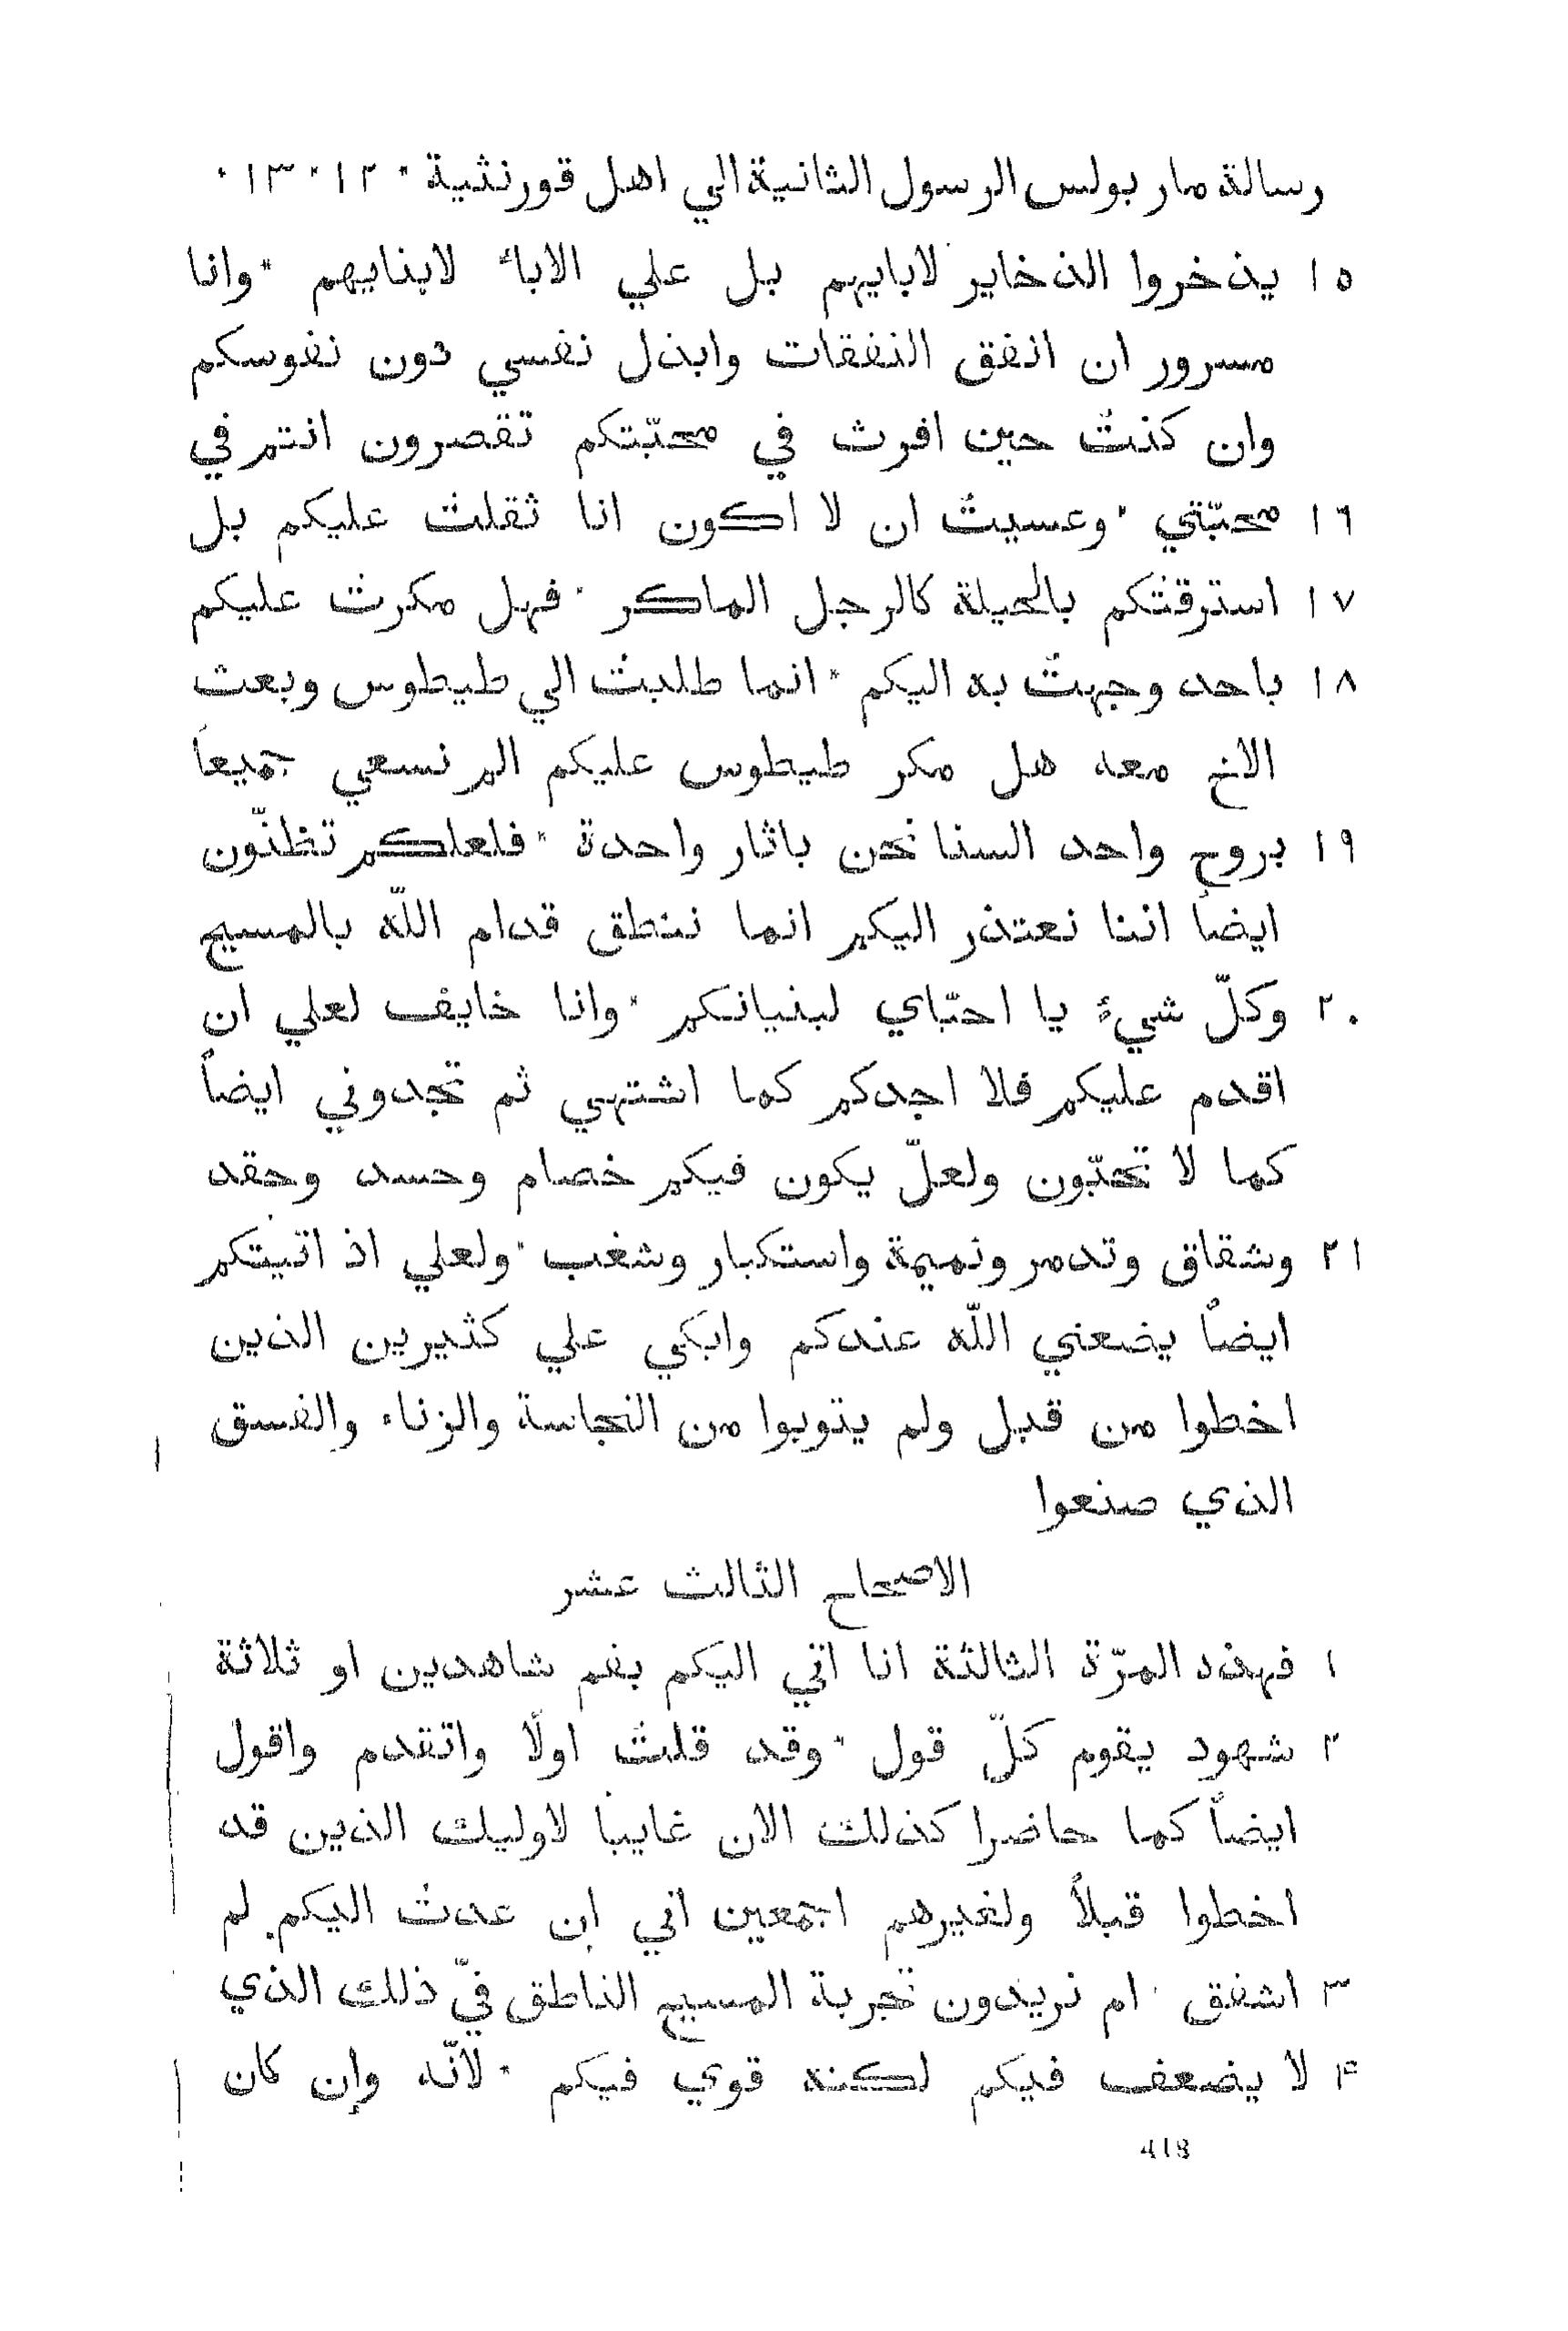 رسالة مار بولس الرسول الثانية الي اهل قورنثية * ١٢ * ١٣ *
١٥ يذخروا الذخاير لابايهم بل علي الاباء لابنايهم * وانا
مسرور ان انفق النفقات وابذل نفسي دون نفوسكم
وان كنتُ حين افرت في محبّتكم تقصرون انتم في
١٦ محبّتي * وعسيتُ ان لا اكون انا ثقلت عليكم بل
١٧ استرقتكم بالحيلة كالرجل الماكر * فهل مكرت عليكم
١٨ باحد وجهتُ به اليكم * انما طلبت الي طيطوس وبعث
الاخ معه هل مكر طيطوس عليكم الم نسعي جميعاً
١٩ بروحٍ واحد السنا نحن باثار واحدة * فلعلكم تظنّون
ايضاً اننا نعتذر اليكم انما ننطق قدام اللّه بالمسيح
٢٠ وكلّ شيءٌ يا احبّاي لبنيانكم * وانا خايف لعلي ان
اقدم عليكم فلا اجدكم كما اشتهي ثم تجدوني ايضاً
كما لا تحبّون ولعلّ يكون فيكم خصام وحسد وحقد
٢١ وشقاق وتدمر ونميمة واستكبار وشغب * ولعلي اذ اتيتكم
ايضاً يضعني اللّه عندكم وابكي علي كثيرين الذين
اخطوا من قبل ولم يتوبوا من النجاسة والزناء والفسق
الذي صنعوا
الاصحاح الثالث عشر
١ فهذه المرّة الثالثة انا اتي اليكم بفم شاهدين او ثلاثة
٢ شهود يقوم كلّ قول * وقد قلتُ اولًا واتقدم واقول
ايضاً كما حاضرا كذلك الان غايباً لاوليك الذين قد
اخطوا قبلاً ولغيرهم اجمعين اني ان عدت اليكم لم
٣ اشفق * ام نريدون تجربة المسيح الناطق فيّ ذلك الذي
۴ لا يضعف فيكم لكنه قوي فيكم * لانّه وإن كان
418